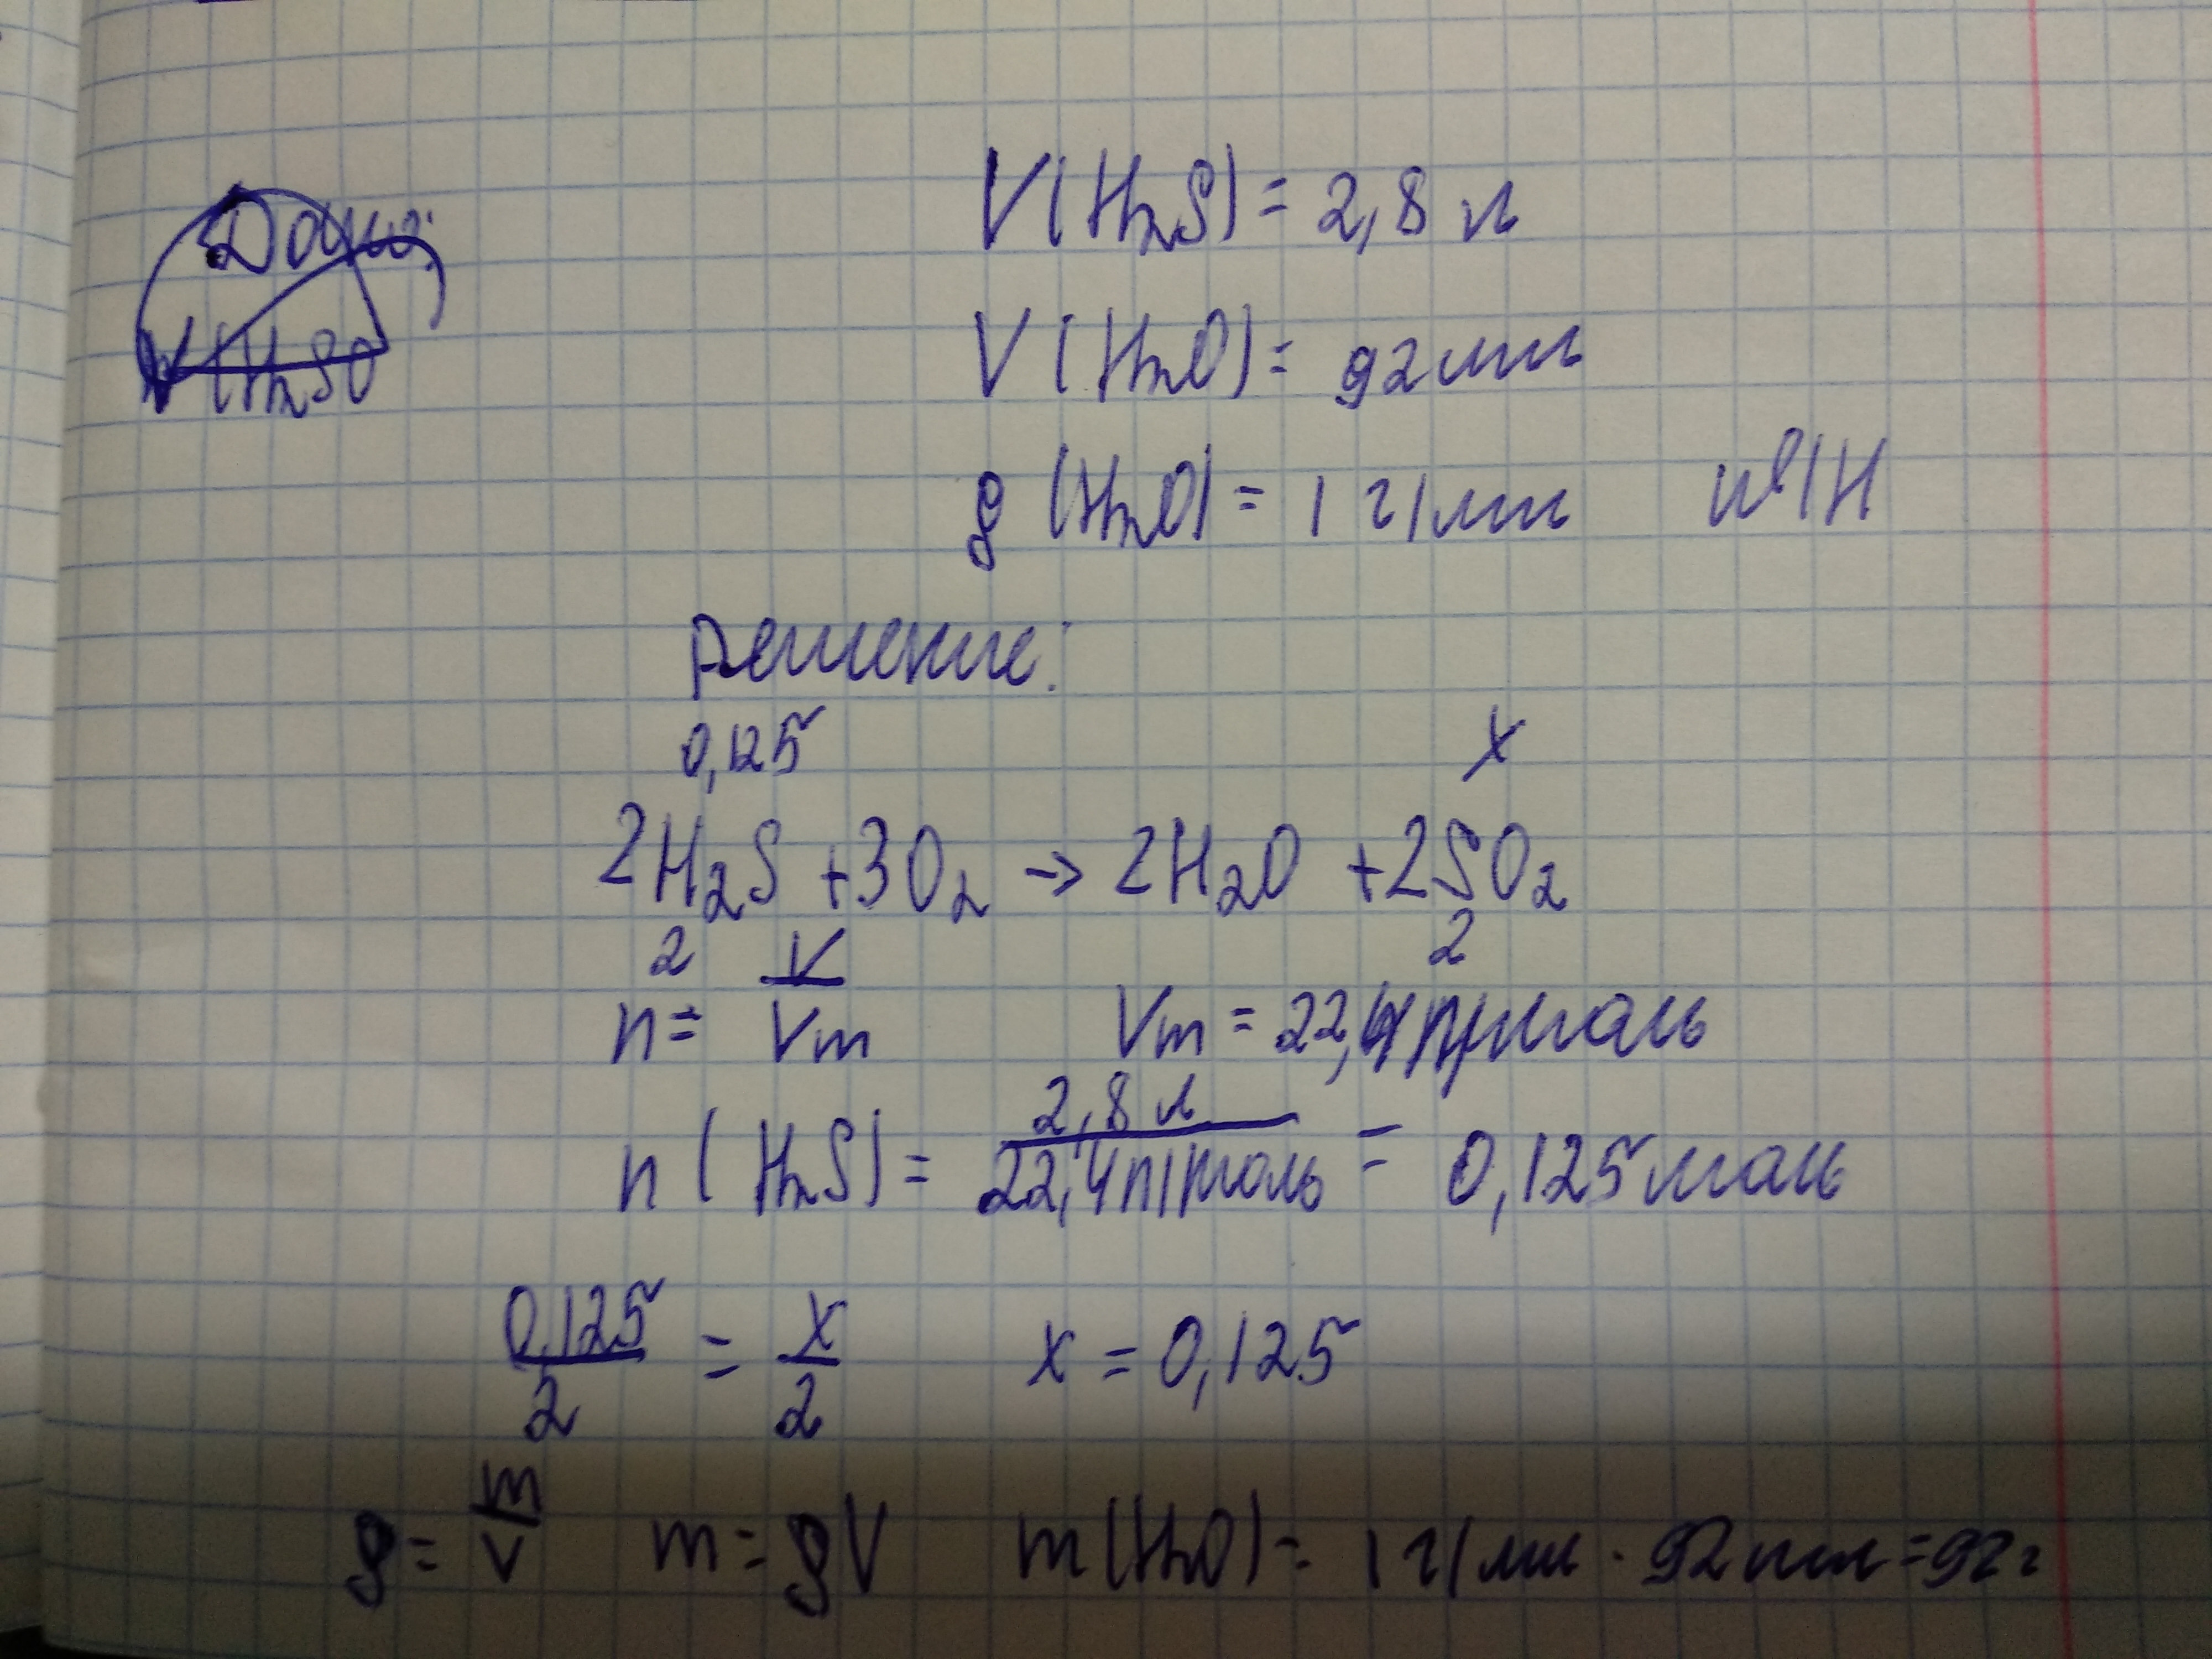 Дано:
V(H2SO
V(H2S) = 2,8 л
V(H2O) = 92 мл
ρ(H2O) = 1 г/мл
Решение:
0,125 x
2H2S + 3O2 → 2H2O + 2SO2
2 2
n = V/Vm Vm = 22,4 л/моль
n(H2S) = 2,8 л/22,4 л/моль = 0,125 моль
0,125/2 = x/2 x = 0,125
ρ = m/V m = ρV m(H2O) = 1 г/мл · 92 мл = 92 г